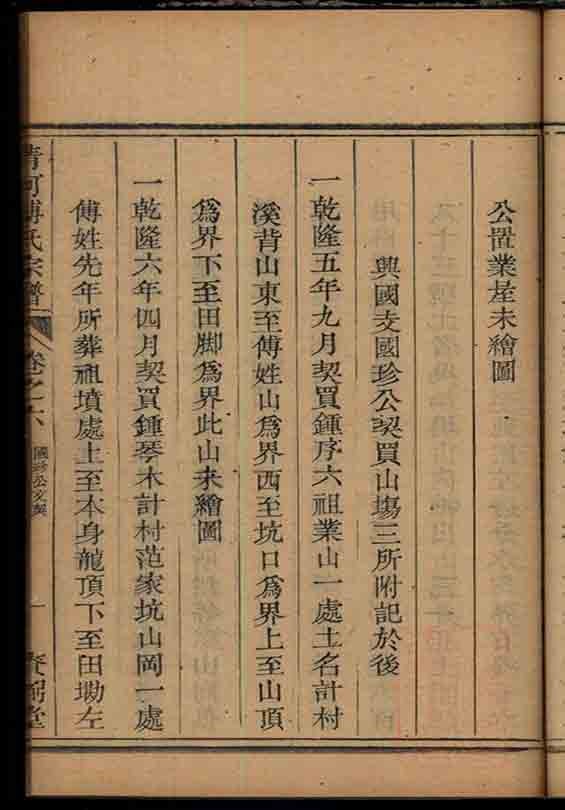 公置業崖未繪圖
興國支國珍公契買山塲三所附記於後
一乾隆五年九月契買鍾序六祖業山一處土名計村
溪背山東至傅姓山爲界西至坑口爲界上至山頂
爲界下至田脚爲界此山未繪圖
一乾隆六年四月契買鍾琴木計村范家坑山岡一處
傅姓先年所葬祖墳處上至本身龍頂下至田塝左
清河傅氏宗譜 卷之六 國珍公支契 一